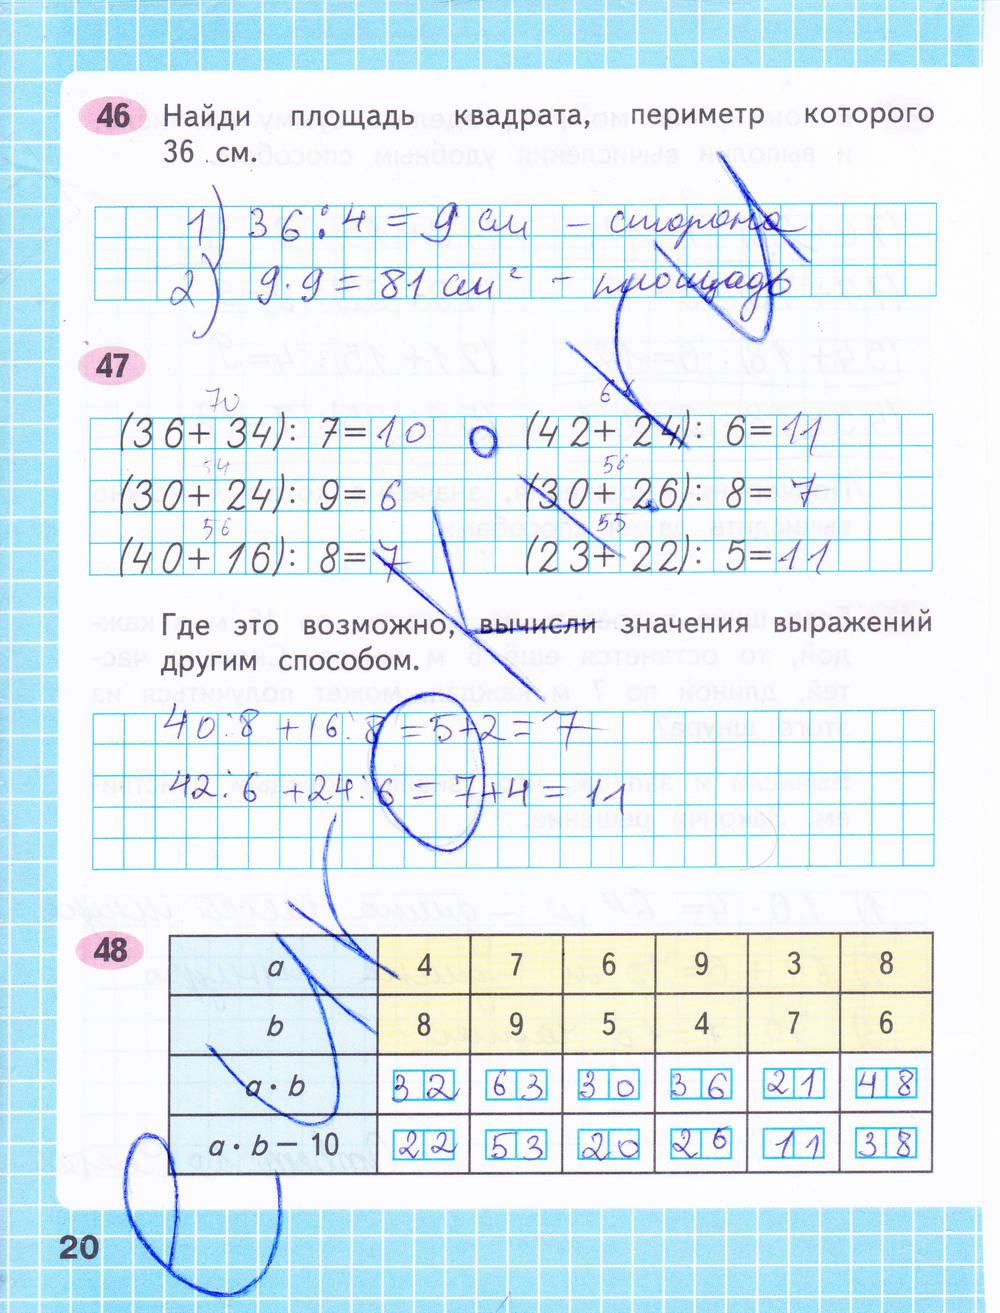 46 Найди площадь квадрата, периметр которого
36 см.
1) 36 : 4 = 9 см – сторона
2) 9 · 9 = 81 см² – площадь
47
70
(36 + 34) : 7 = 10
66
(42 + 24) : 6 = 11
54
(30 + 24) : 9 = 6
56
(30 + 26) : 8 = 7
56
(40 + 16) : 8 = 7
55
(23 + 22) : 5 = 11
Где это возможно, вычисли значения выражений
другим способом.
40 : 8 + 16 : 8 = 5 + 2 = 7
42 : 6 + 24 : 6 = 7 + 4 = 11
48
a 4 7 6 9 3 8
b 8 9 5 4 7 6
a · b 32 63 30 36 21 48
a · b – 10 22 53 20 26 11 38
20